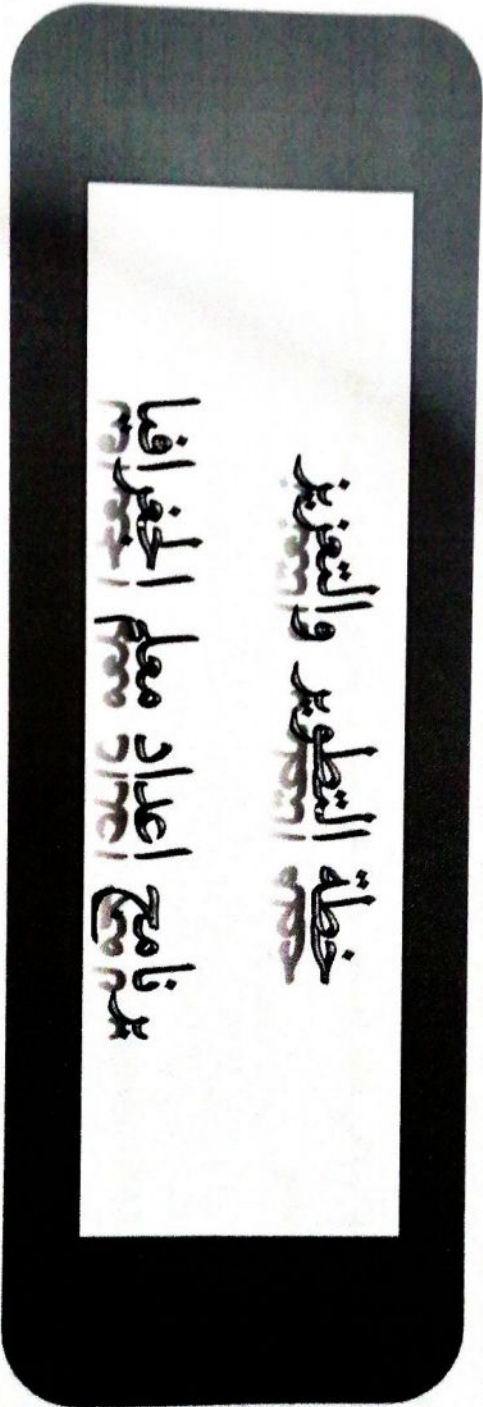 خطة التطوير والتعزيز
برنامج اعداد معلم الجغرافيا